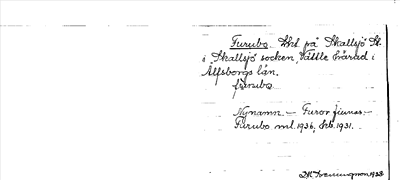 Furubo. Lht på Skallsjö St.
i Skallsjö socken, Vättle härad i
Älfsborgs län.
furubo
Nynamn. – Furor finnas. –
Furubo ml. 1936, Krb. 1931.
1938